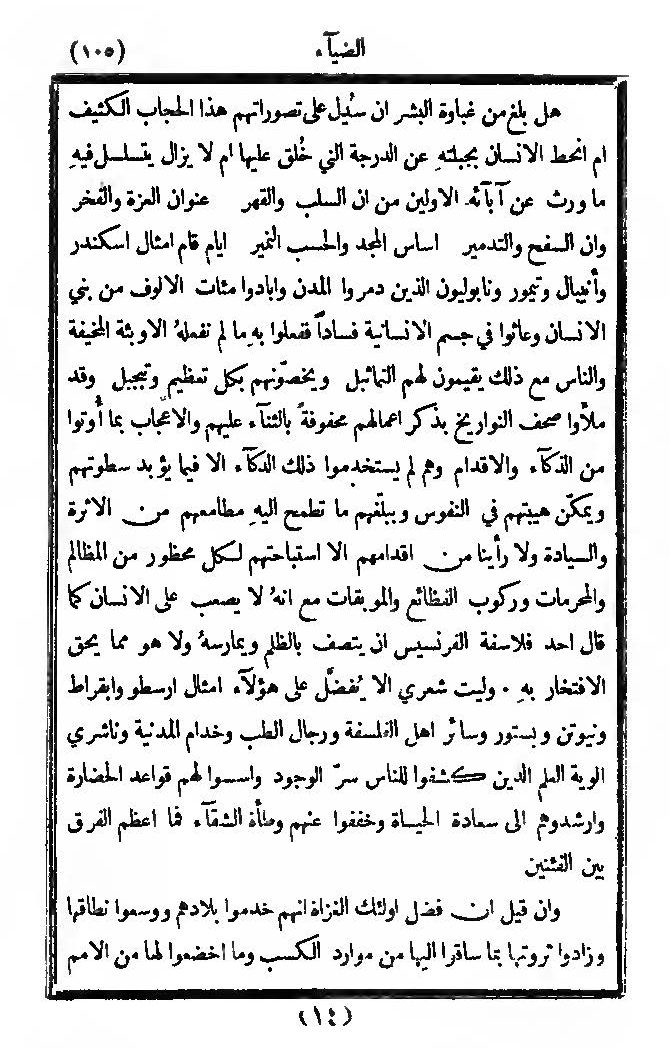 الضيآء (١٠٥)
هل بلغ من غباوة البشر ان سُدِل على تصوراتهم هذا الحجاب الكثيف
ام انحط الانسان بجبلتهِ عن الدرجة التي خُلق عليها ام لا يزال يتسلسل فيهِ
ما ورث عن آبآئه الاولين من ان السلب والقهر عنوان العزة والفخر
وان السفح والتدمير اساس المجد والحسب النمير ايام قام امثال اسكندر
وأنيبال وتيمور ونابوليون الذين دمروا المدن وابادوا مئات الالوف من بني
الانسان وعاثوا في جسم الانسانية فساداً ففعلوا بهِ ما لم تفعلهُ الاوبئة المخيفة
والناس مع ذلك يقيمون لهم التماثيل ويخصّونهم بكل تعظيم وتبجيل وقد
ملأوا صحف التواريخ بذكر اعمالهم محفوفةً بالثنآء عليهم والاعجاب بما أُوتوا
من الذكآء والاقدام وهم لم يستخدموا ذلك الذكآء الا فيما يؤيد سطوتهم
ويمكّن هيبتهم في النفوس ويبلّغهم ما تطمح اليهِ مطامعهم من الاثرة
والسيادة ولا رأينا من اقدامهم الا استباحتهم لكل محظور من المظالم
والمحرمات وركوب الفظائع والموبقات مع انهُ لا يصعب على الانسان كما
قال احد فلاسفة الفرنسيس ان يتصف بالظلم ويمارسهُ ولا هو مما يحق
الافتخار بهِ ٠ وليت شعري الا يُفضَّل على هؤلآء امثال ارسطو وابقراط
ونيوتن وبستور وسائر اهل الفلسفة ورجال الطب وخدام المدنية وناشري
الوية العلم الذين كشفوا للناس سرّ الوجود واسسوا لهم قواعد الحضارة
وارشدوهم الى سعادة الحياة وخففوا عنهم وطأة الشقآء فما اعظم الفرق
بين الفئتين
وان قيل ان فضل اولئك الغزاة انهم خدموا بلادهم ووسعوا نطاقها
وزادوا ثروتها بما ساقوا اليها من موارد الكسب وما اخضعوا لها من الامم
(١٤)